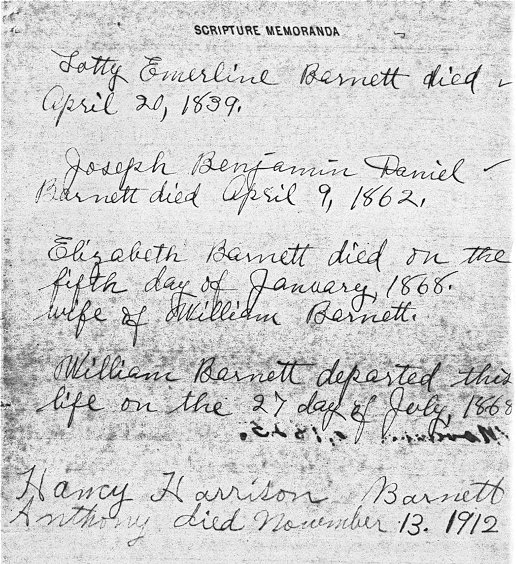 SCRIPTURE MEMORANDA
Lotty Emerline Barnett died
April 20, 1839.
Joseph Benjamin Daniel
Barnett died April 9, 1862.
Elizabeth Barnett died on the
fifth day of January, 1868.
wife of William Barnett.
William Barnett departed this
life on the 27 day of July, 1868
Nancy Harrison Barnett
Anthony died November 13. 1912